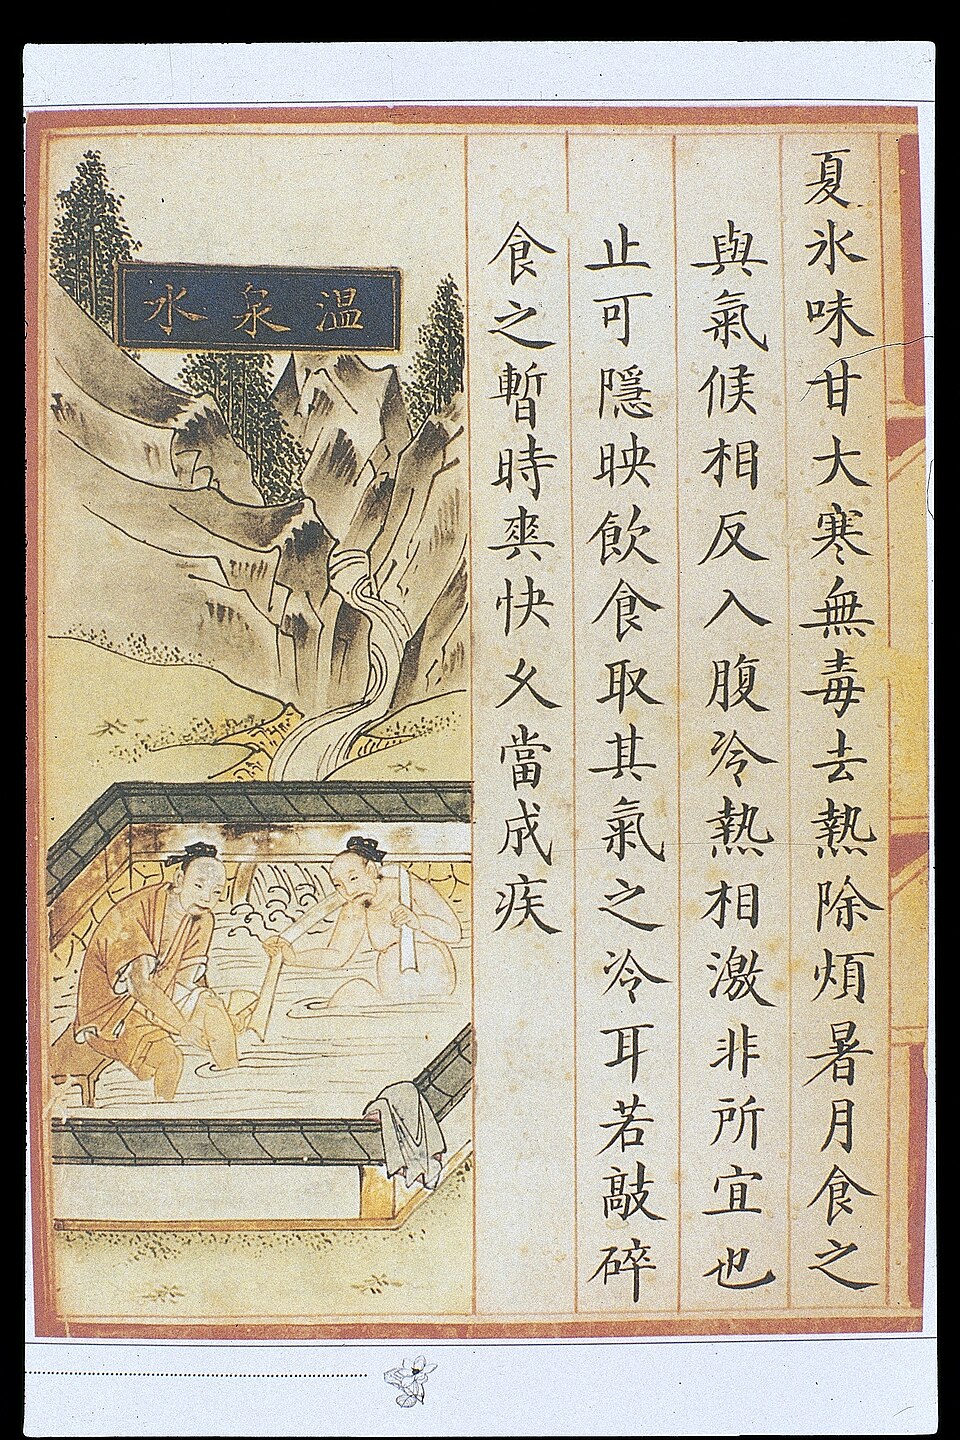 夏氷味甘大寒無毒去熱除煩暑月食之
與氣候相反入腹冷熱相激非所宜也
止可隱映飲食取其氣之冷耳若敲碎
食之暫時爽快久當成疾
温泉水